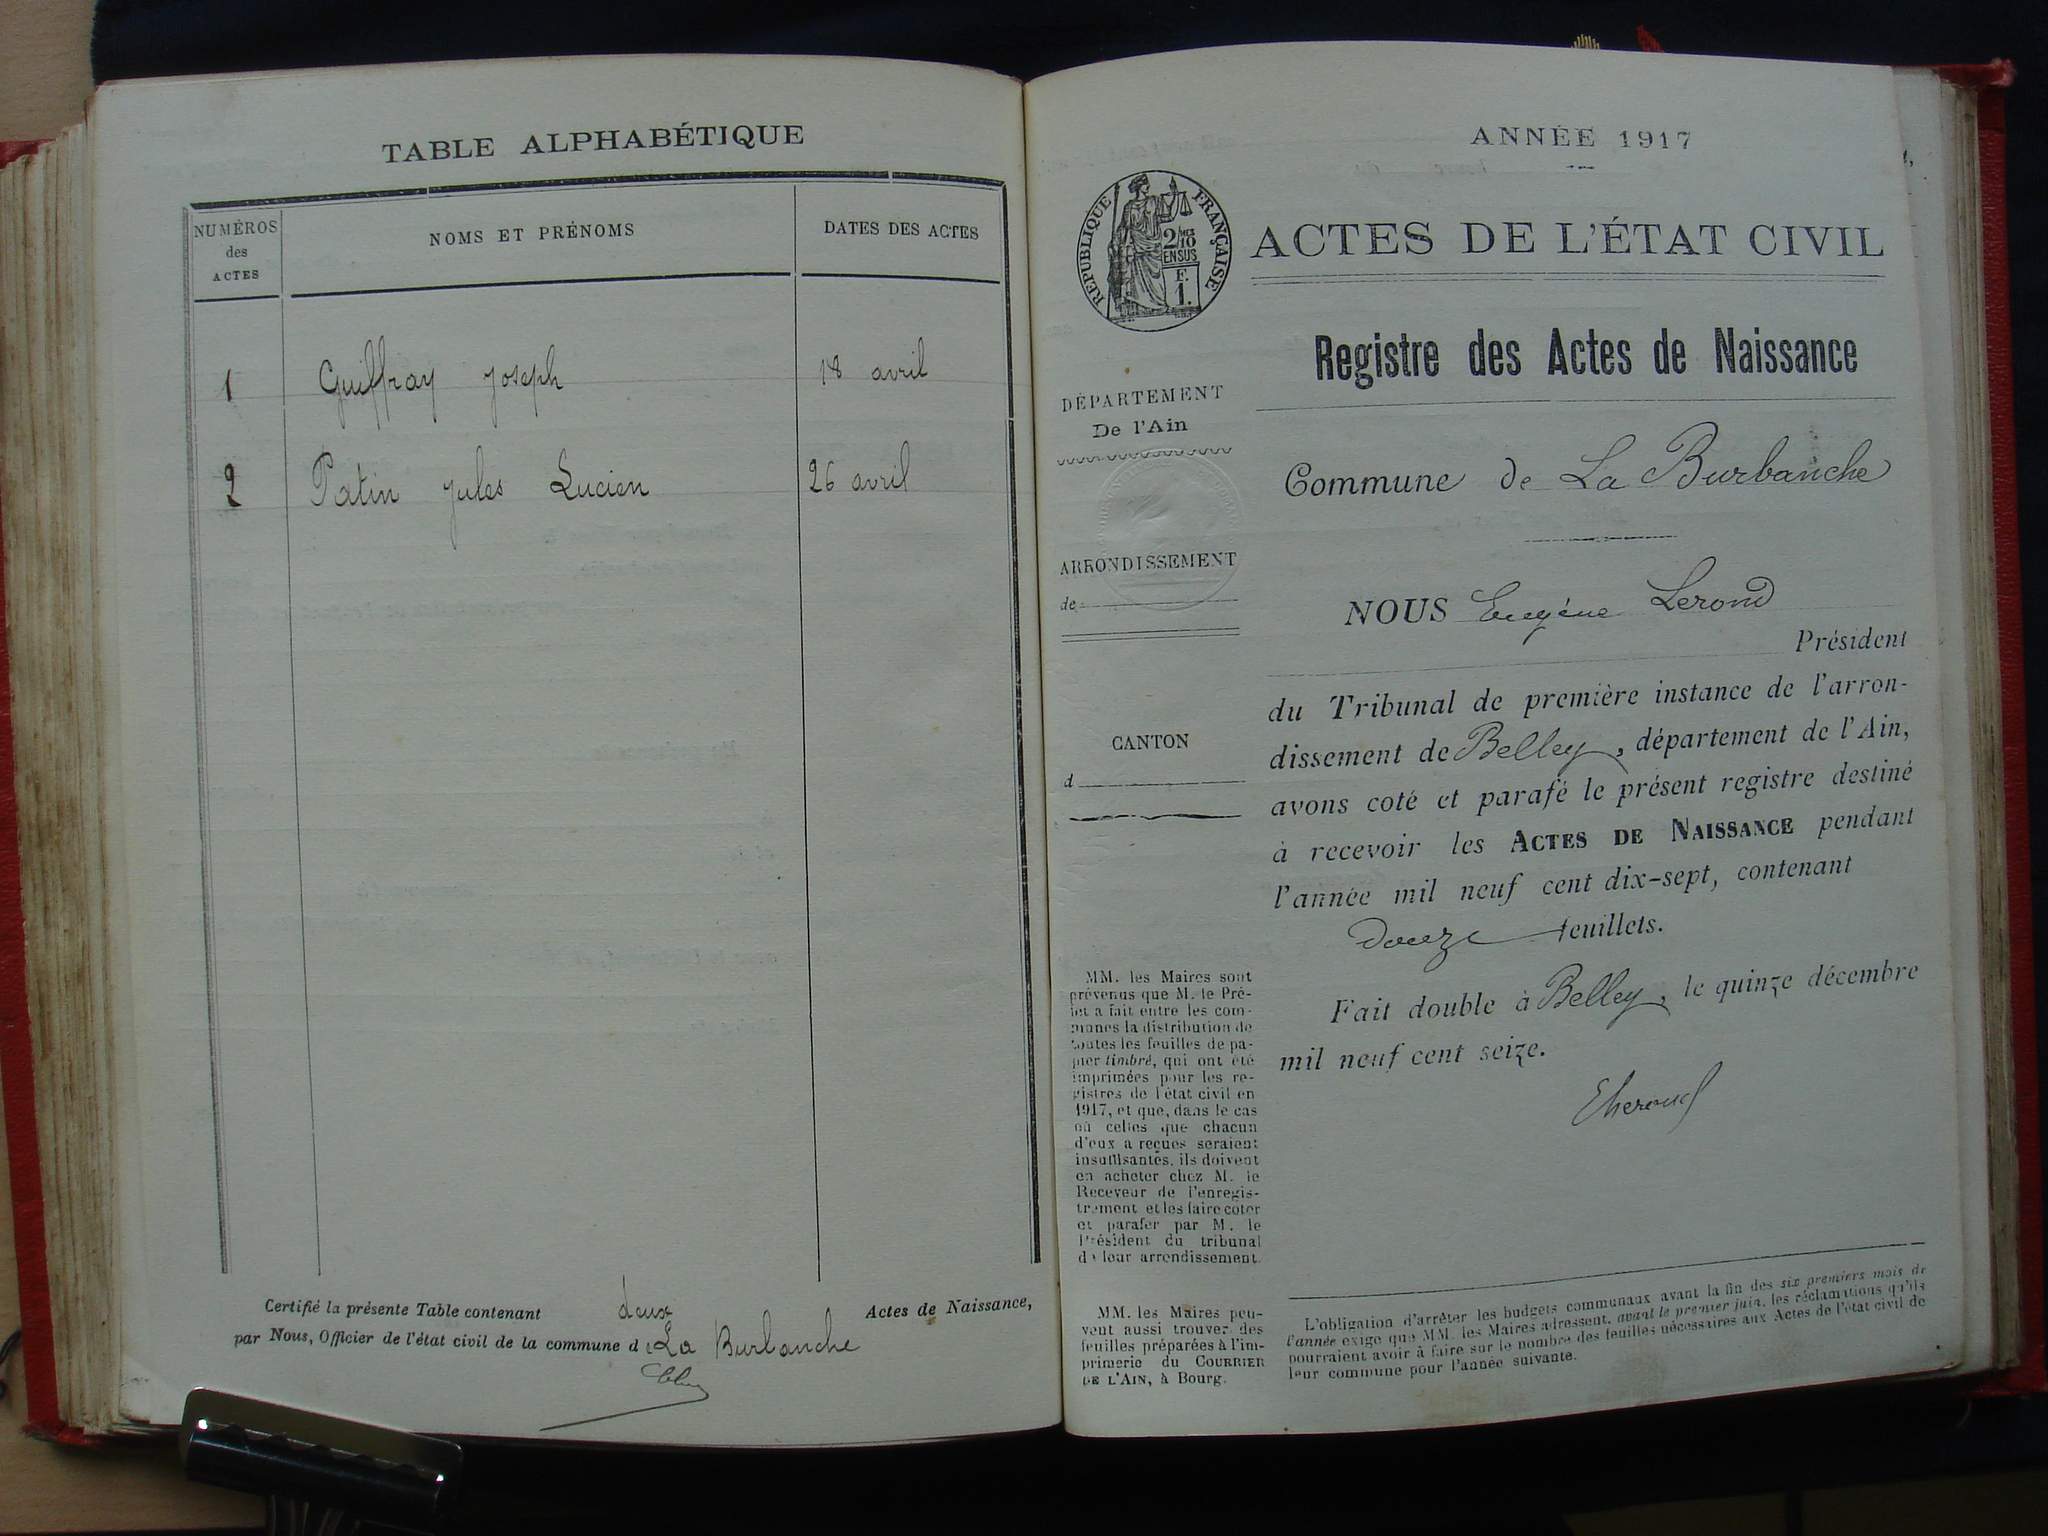 TABLE ALPHABÉTIQUE
NUMÉROS
des
ACTES
NOMS ET PRÉNOMS
DATES DES ACTES
1 Guiffray Joseph 18 avril
2 Patin Jules Lucien 26 avril
Certifié la présente Table contenant deux Actes de Naissance,
par Nous, Officier de l'état civil de la commune de La Burbanche
ANNÉE 1917
RÉPUBLIQUE FRANÇAISE
2/10
EN SUS
F.
1.
ACTES DE L'ÉTAT CIVIL
Registre des Actes de Naissance
DÉPARTEMENT
De l'Ain
ARRONDISSEMENT
de
CANTON
d
MM. les Maires sont
prévenus que M. le Pré-
fet a fait entre les com-
munes la distribution de
toutes les feuilles de pa-
pier timbré, qui ont été
imprimées pour les re-
gistres de l'état civil en
1917, et que, dans le cas
où celles que chacun
d'eux a reçues seraient
insuffisantes, ils doivent
en acheter chez M. le
Receveur de l'enregis-
trement et les faire coter
et parafer par M. le
Président du tribunal
de leur arrondissement.
MM. les Maires peu-
vent aussi trouver des
feuilles préparées à l'im-
primerie du COURRIER
DE L'AIN, à Bourg.
Commune de La Burbanche
NOUS Eugène Lerond
Président
du Tribunal de première instance de l'arron-
dissement de Belley, département de l'Ain,
avons coté et parafé le présent registre destiné
à recevoir les ACTES DE NAISSANCE pendant
l'année mil neuf cent dix-sept, contenant
Douze feuillets.
Fait double à Belley, le quinze décembre
mil neuf cent seize.
L'obligation d'arrêter les budgets communaux avant la fin des six premiers mois de
l'année exige que MM. les Maires adressent, avant le premier juin, les réclamations qu'ils
pourraient avoir à faire sur le nombre des feuilles nécessaires aux Actes de l'état civil de
leur commune pour l'année suivante.